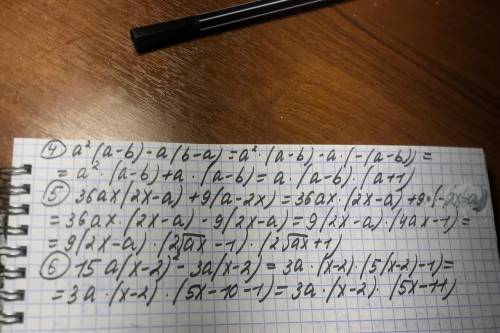 ④ a²(a-b)-a(b-a)=a²·(a-b)-a·(-(a-b))=
=a²·(a-b)+a·(a-b)=a·(a-b)·(a+1)
⑤ 36ax(2x-a)+9(a-2x)=36ax·(2x-a)+9·(-(2x-a))
=36ax·(2x-a)-9(2x-a)=9(2x-a)·(4ax-1)=
=9(2x-a)·(2√ax-1)·(2√ax+1)
⑥ 15a(x-2)²-3a(x-2)=3a·(x-2)·(5(x-2)-1)=
=3a·(x-2)·(5x-10-1)=3a·(x-2)·(5x-11)